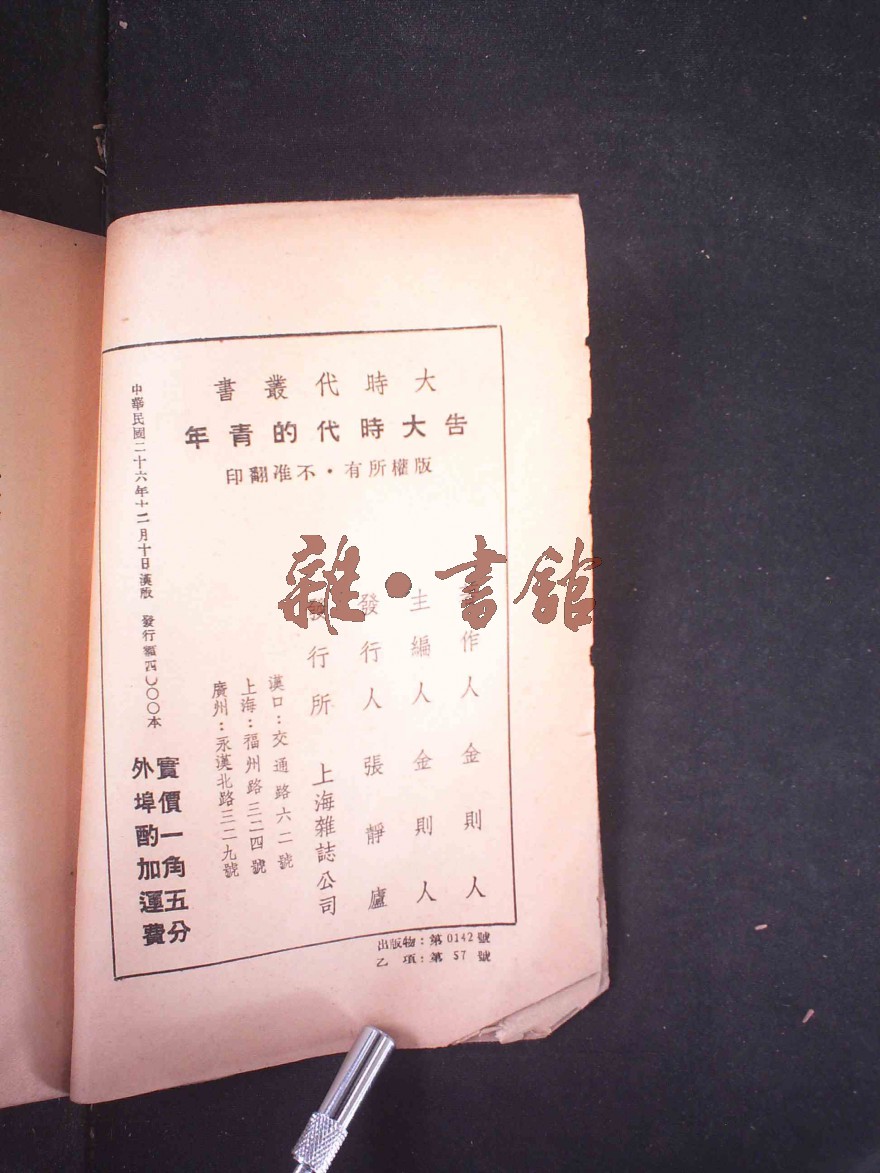 大時代叢書
告大時代的青年
版權所有・不准翻印
作人 金則人
主編人 金則人
發行人 張靜廬
發行所 上海雜誌公司
漢口：交通路六二號
上海：福州路三二四號
廣州：永漢北路三二九號
中華民國二十六年十二月十日漢版 發行額四〇〇〇本
實價一角五分
外埠酌加運費
出版物：第0142號
乙項：第S7號
雜・書館